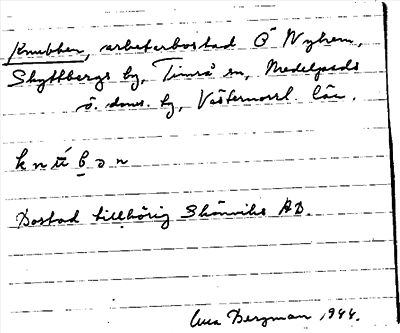 Knubben, arbetarbostad Ö Nyhem,
Skyttbergs by, Timrå sn, Medelpads
ö. doms. hg, Västernorrl. län.
k n ʉ́ b̬ ə n
Bostad tillhörig Skönviks AB.
Bergman 1944.